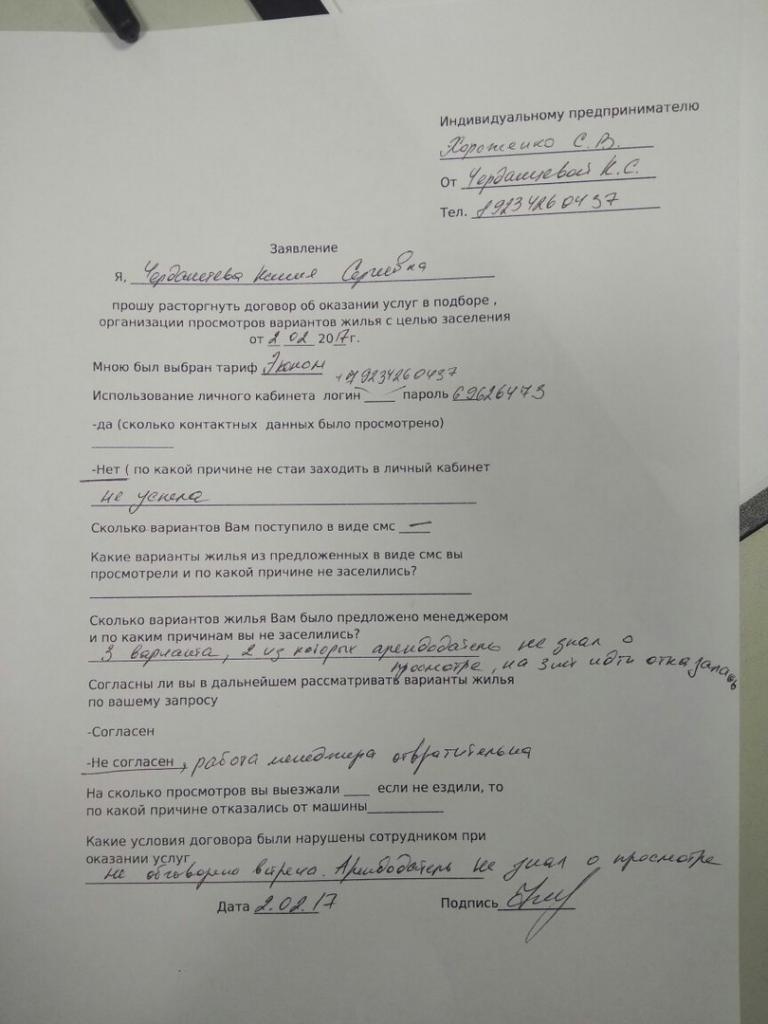 Индивидуальному предпринимателю
Хороженко С. В.
От Чердашевой К. С.
Тел. 89234260437
Заявление
Я, Сергеевна
прошу расторгнуть договор об оказании услуг в подборе ,
организации просмотров вариантов жилья с целью заселения
от 2 02 2017г.
Мною был выбран тариф Эконом
+79234260437
Использование личного кабинета логин ____ пароль 69626473
-да (сколько контактных данных было просмотрено)
-Нет ( по какой причине не стаи заходить в личный кабинет
не успела
Сколько вариантов Вам поступило в виде смс —
Какие варианты жилья из предложенных в виде смс вы
просмотрели и по какой причине не заселились?
Сколько вариантов жилья Вам было предложено менеджером
и по каким причинам вы не заселились?
3 варианта, 2 из которых арендодатель не знал о
просмотре, на 3ий идти отказалась
Согласны ли вы в дальнейшем рассматривать варианты жилья
по вашему запросу
-Согласен
-Не согласен, работа менеджера отвратительна
На сколько просмотров вы выезжали ____ если не ездили, то
по какой причине отказались от машины
Какие условия договора были нарушены сотрудником при
оказании услуг
не обговорена встреча. Арендодатель не знал о просмотре
Дата 2.02.17 Подпись